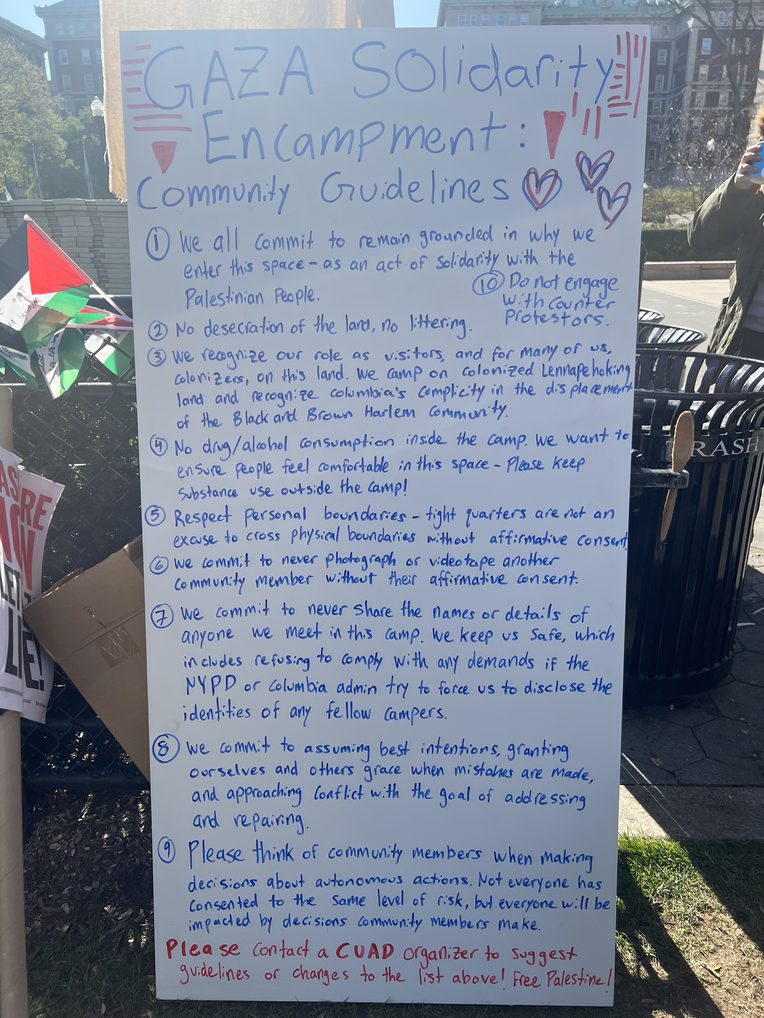 GAZA Solidarity
Encampment:
Community Guidelines
① We all commit to remain grounded in why we
enter this space - as an act of Solidarity with the
Palestinian People.
② No desecration of the land, no littering.
③ We recognize our role as visitors, and for many of us,
colonizers, on this land. We camp on colonized Lennapehoking
land and recognize columbia's complicity in the displacement
of the Black and Brown Harlem Community.
④ No drug/alcohol consumption inside the camp. We want to
ensure people feel comfortable in this space - Please keep
substance use outside the camp!
⑤ Respect Personal boundaries - tight quarters are not an
excuse to cross physical boundaries without affirmative consent.
⑥ We commit to never photograph or videotape another
community member without their affirmative consent.
⑦ We commit to never share the names or details of
anyone we meet in this camp. We keep us safe, which
includes refusing to comply with any demands if the
NYPD or Columbia admin try to force us to disclose the
identities of any fellow campers.
⑧ We commit to assuming best intentions, granting
ourselves and others grace when mistakes are made,
and approaching conflict with the goal of addressing
and repairing.
⑨ Please think of community members when making
decisions about autonomous actions. Not everyone has
consented to the same level of risk, but everyone will be
impacted by decisions community members make.
⑩ Do not engage
with counter
Protestors.
Please contact a CUAD organizer to suggest
guidelines or changes to the list above! Free Palestine!
TRASH